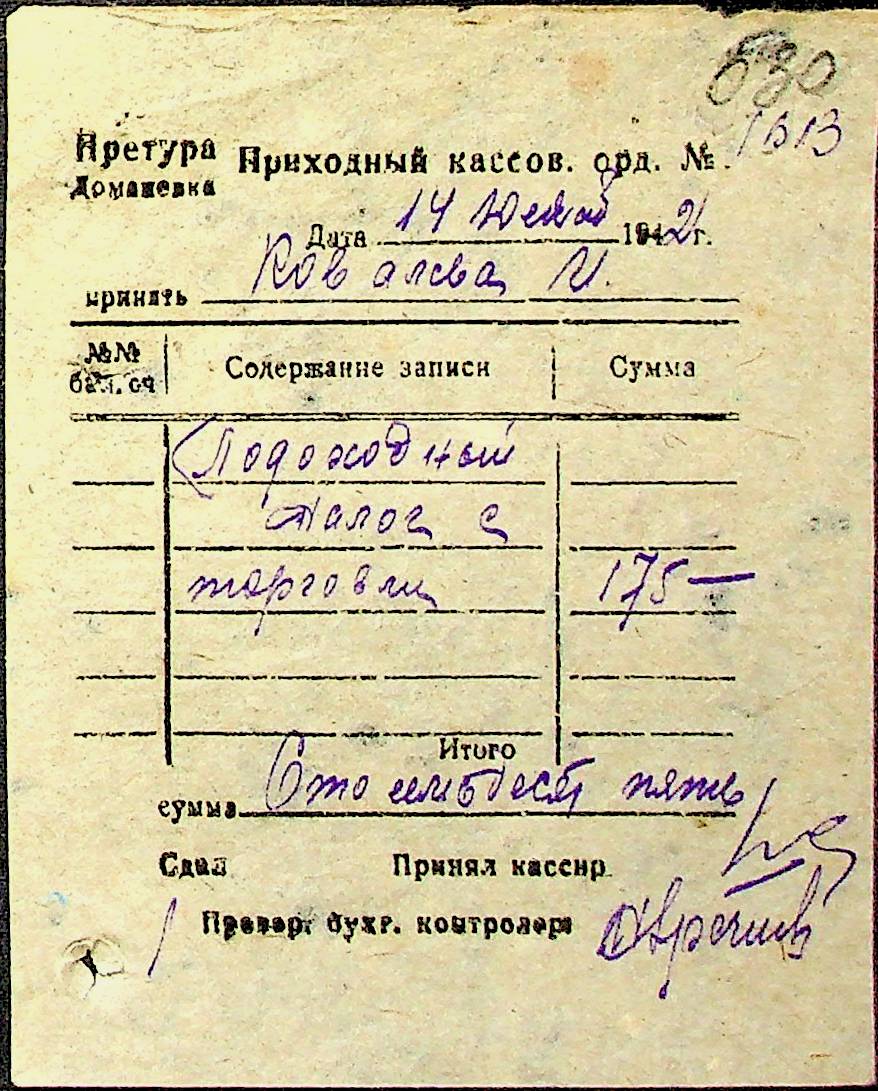 830
Претура Приходный кассов. орд. №
Доманевка
Дата 14 1942 г.
Ковалева И.
принять
№№ бал. сч Содержание записи Сумма
Подоходный
налог с
торговли 175 —
Итого
сумма Сто семьдесят пять
Сдал Принял кассир
Провер. бухг. контролера